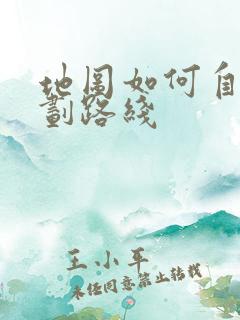 地图如何自
劃路綫
王小平
未经同意禁止转载